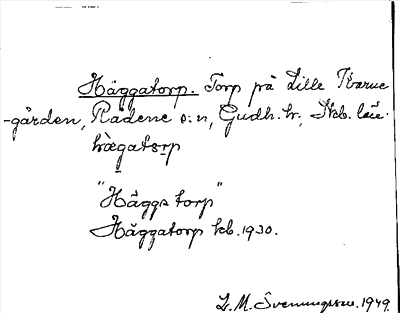 Häggatorp. Torp på Lille Kvarne
-gården, Rådene s:n, Gudh. hr,
hägatɔrp
"Häggs torp"
Häggatorp kb. 1930.
L. M. Svenungsson. 1949.